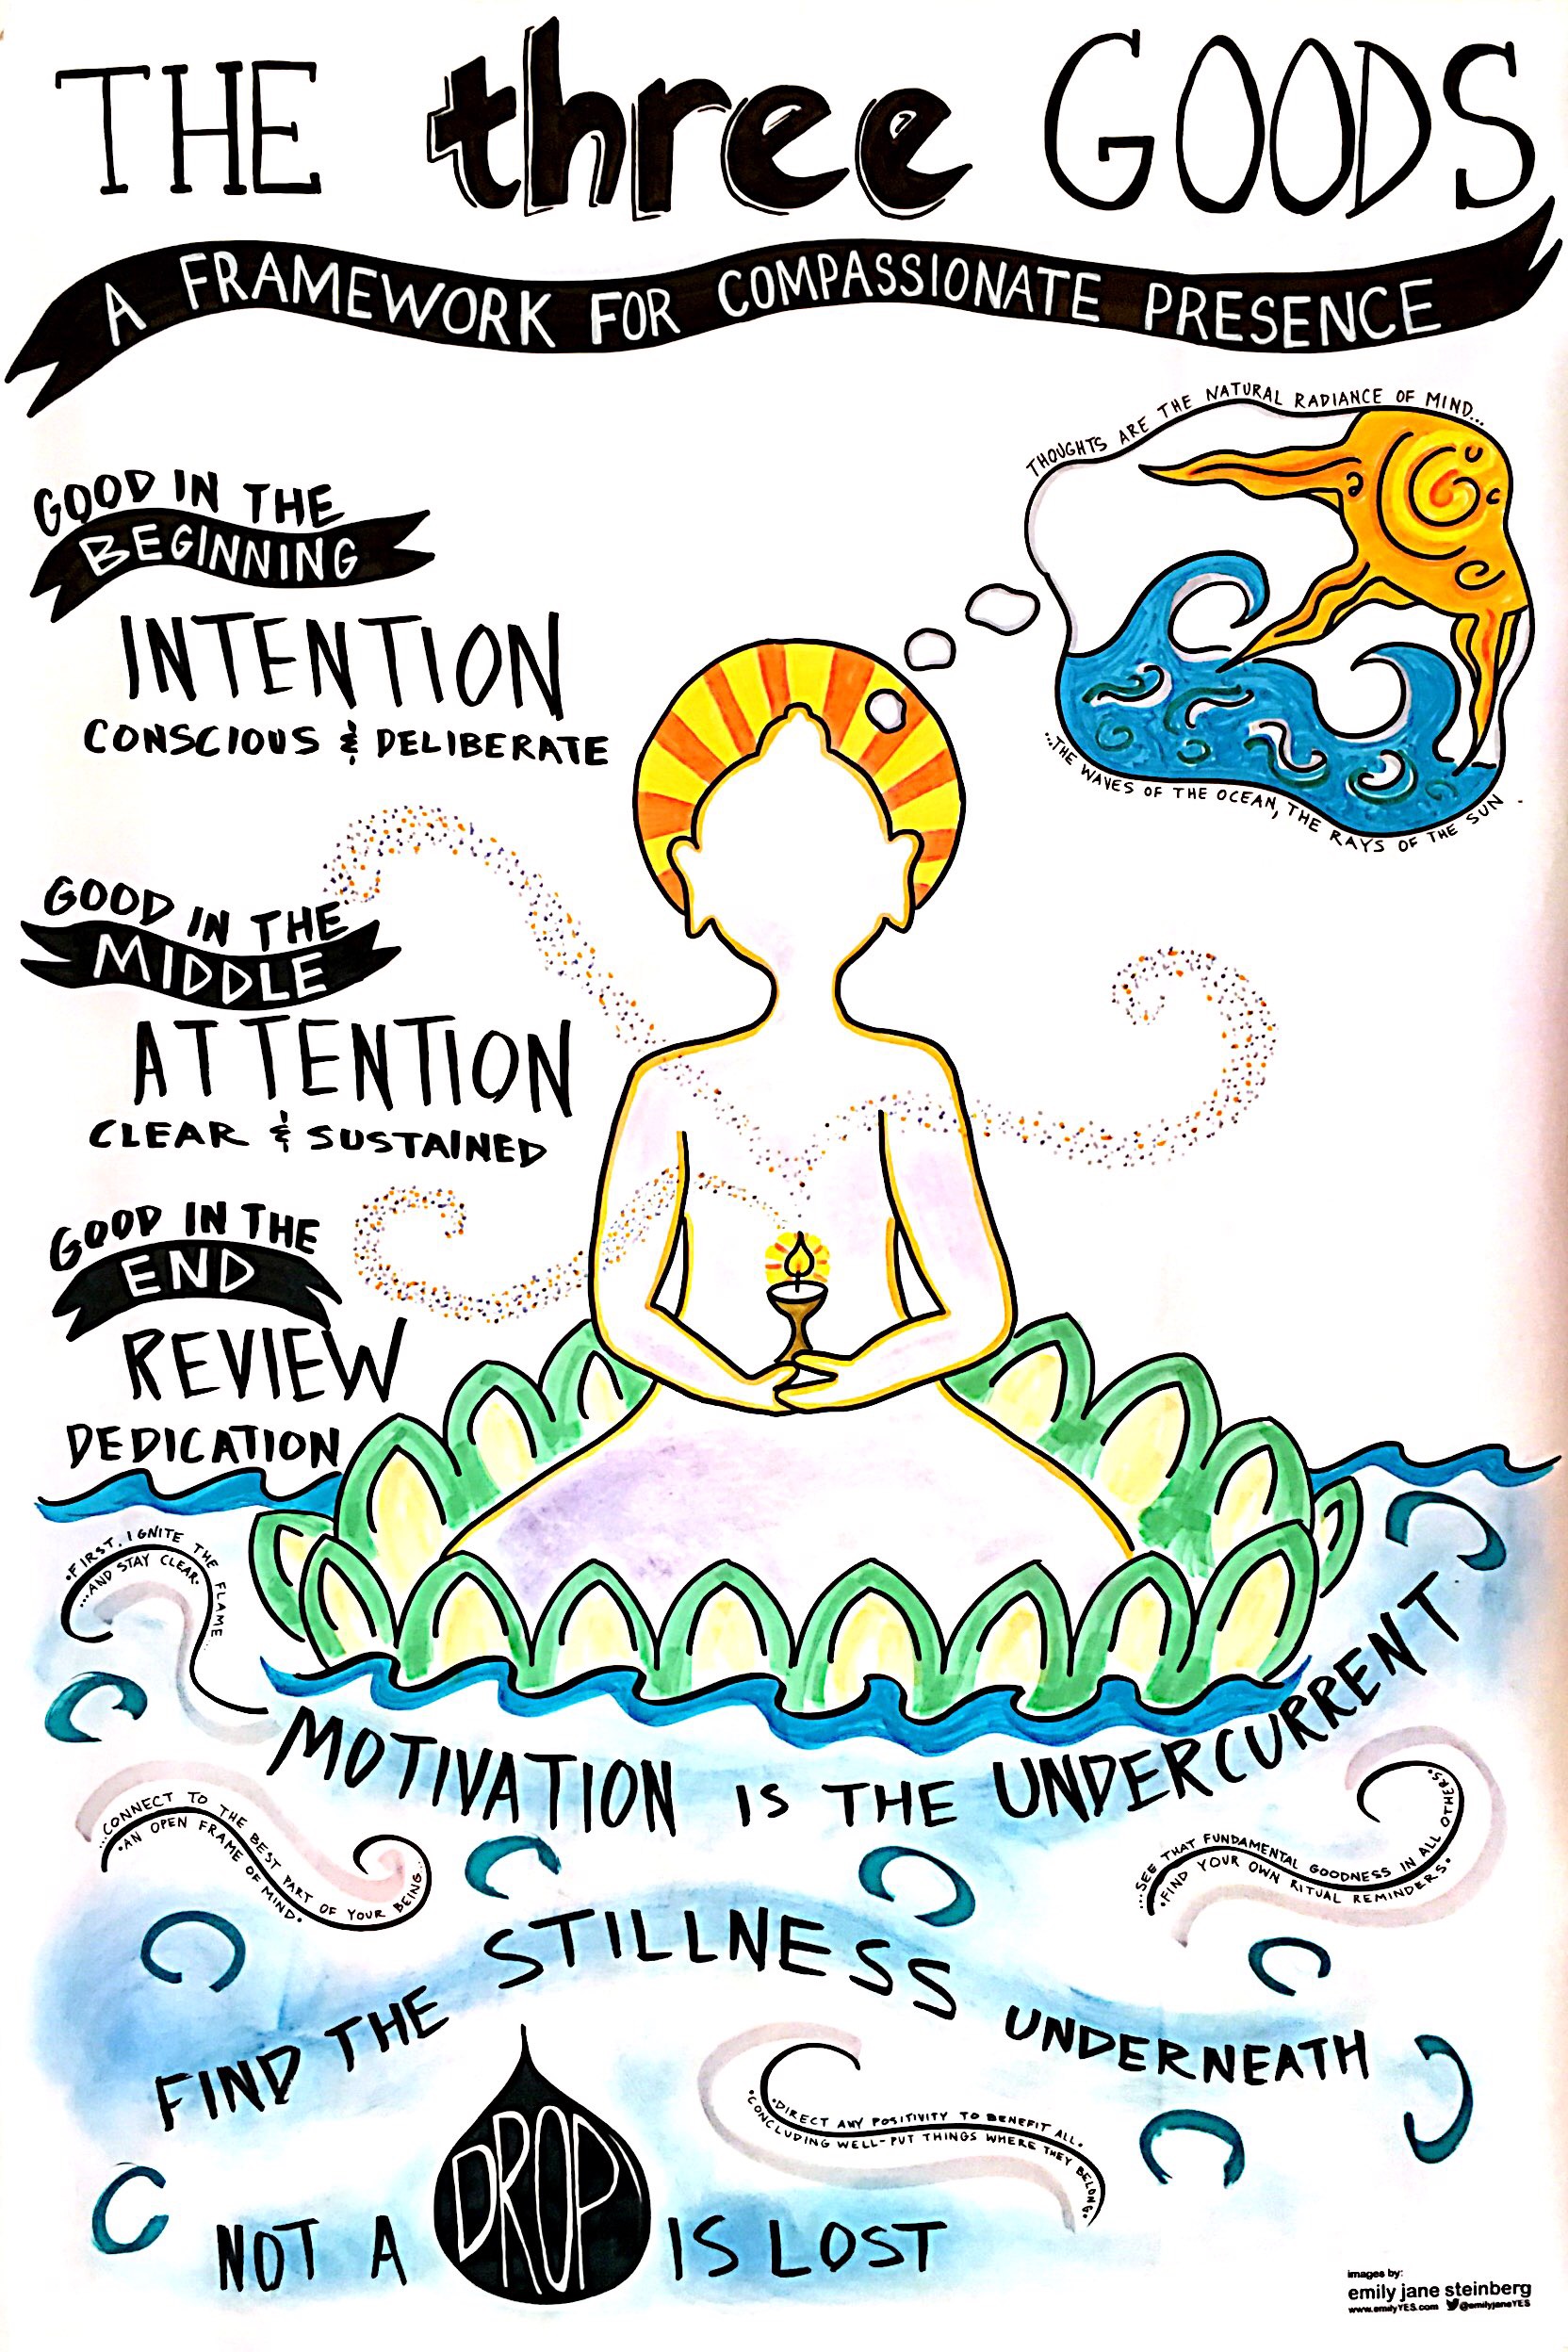 THE three GOODS
A FRAMEWORK FOR COMPASSIONATE PRESENCE
THOUGHTS ARE THE NATURAL RADIANCE OF MIND...
...THE WAVES OF THE OCEAN, THE RAYS OF THE SUN
GOOD IN THE
BEGINNING
INTENTION
CONSCIOUS & DELIBERATE
GOOD IN THE
MIDDLE
ATTENTION
CLEAR & SUSTAINED
GOOD IN THE
END
REVIEW
DEDICATION
•FIRST, IGNITE THE FLAME...
...AND STAY CLEAR•
MOTIVATION IS THE UNDERCURRENT
...CONNECT TO THE BEST PART OF YOUR BEING...
•AN OPEN FRAME OF MIND•
...SEE THAT FUNDAMENTAL GOODNESS IN ALL OTHERS•
•FIND YOUR OWN RITUAL REMINDERS•
FIND THE STILLNESS UNDERNEATH
•DIRECT ANY POSITIVITY TO BENEFIT ALL•
•CONCLUDING WELL-PUT THINGS WHERE THEY BELONG•
NOT A DROP IS LOST
images by:
emily jane steinberg
www.emilyYES.com @emilyjaneYES